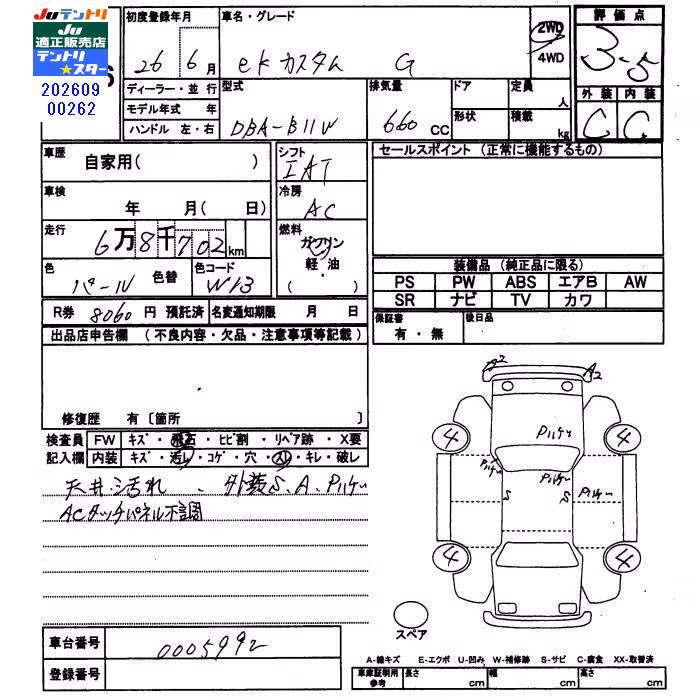 Juテントリ
Ju
適正販売店
テントリ
★スター
202609
00262
初度登録年月
26 6月
車名・グレード
ek カスタム G
2WD
4WD
評価点
3.5
外装 内装
C C
ディーラー・並行
モデル年式 年
ハンドル 左・右
型式
DBA-B11W
排気量
660 CC
ドア
形状
定員
人
積載
kg
車歴
自家用( )
車検
年 月( 日)
走行
6万8千702km
色
パール
色替
色コード
W13
シフト
IAT
冷房
AC
燃料
ガソリン
軽・油
( )
R券 8060 円 預託済 名変通知期限 月 日
セールスポイント (正常に機能するもの)
装備品 (純正品に限る)
PS PW ABS エアB AW
SR ナビ TV カワ
保証書
有・無
後日品
出品店申告欄 (不良内容・欠品・注意事項等記載)
修復歴 有〔箇所 〕
検査員
記入欄
FW キズ・飛石・ヒビ割・リペア跡・X要
内装 キズ・汚レ・コゲ・穴・スレ・キレ・破レ
天井汚れ、外装S、A、Pハゲ
ACタッチパネル不調
A2 A2
Pハゲ
4 4
Pハゲ Pハゲ
S S Pハゲ
4 4
スペア
車台番号 0005992
登録番号
A-線キズ E-エクボ U-凹み W-補修跡 S-サビ C-腐食 XX-取替済
車庫証明用
参考
長さ cm 幅 cm 高さ cm